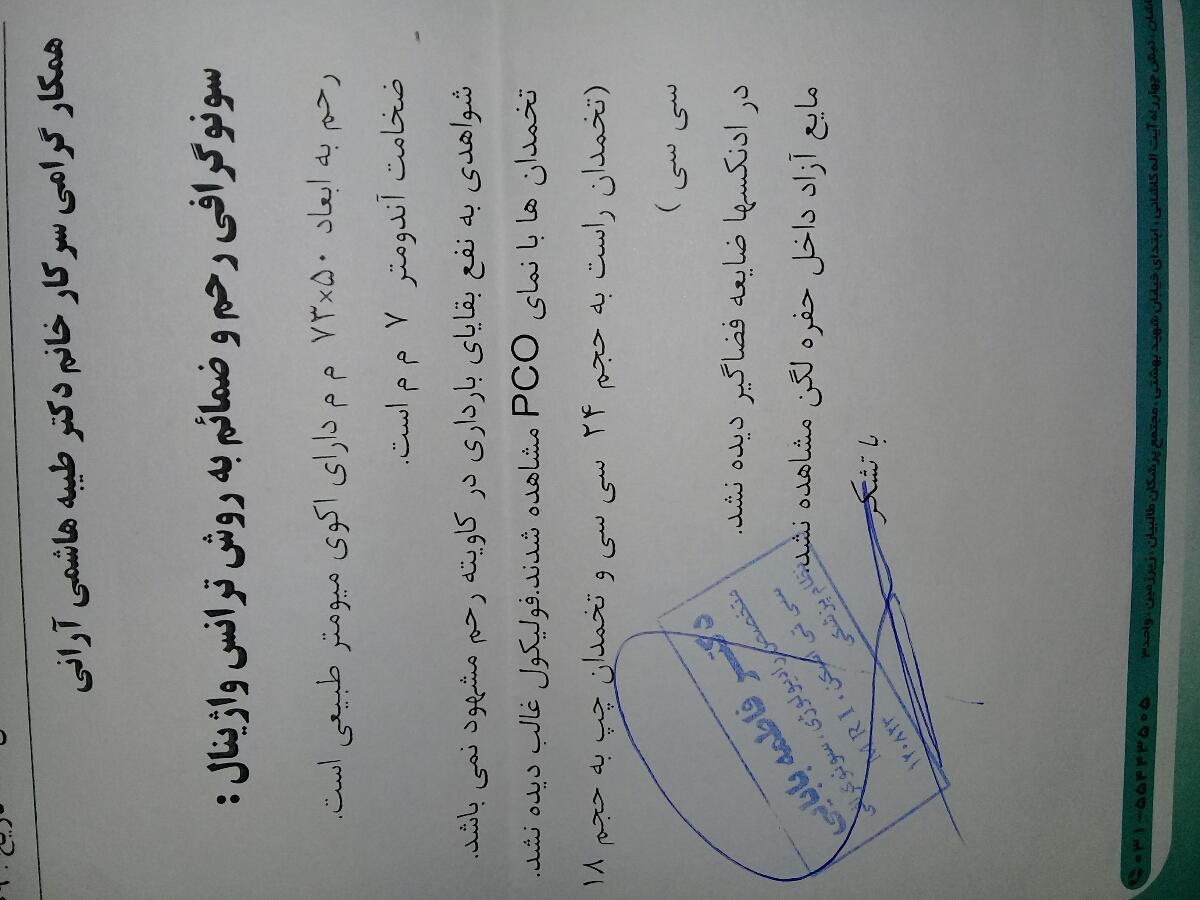 همکار گرامی سرکار خانم دکتر طیبه هاشمی آرانی
سونوگرافی رحم و ضمائم به روش ترانس واژینال:
رحم به ابعاد ۷۳×۵۰ م م دارای اکوی میومتر طبیعی است.
ضخامت آندومتر ۷ م م است.
شواهدی به نفع بقایای بارداری در کاویته رحم مشهود نمی باشد.
تخمدان ها با نمای PCO مشاهده شدند.فولیکول غالب دیده نشد.
(تخمدان راست به حجم ۲۴ سی سی و تخمدان چپ به حجم ۱۸
سی سی )
در ادنکسها ضایعه فضاگیر دیده نشد.
مایع آزاد داخل حفره لگن مشاهده نشد.
با تشکر
دکتر فاطمه بابایی
متخصص رادیولوژی، سونوگرافی
سی تی اسکن، MRI
نظام پزشکی
نبش چهارراه آیت اله کاشانی، ابتدای خیابان شهید بهشتی، مجتمع پزشکان طالبیان، زیرزمین، واحد۳
۰۳۱-۵۵۴۴۳۵۰۵